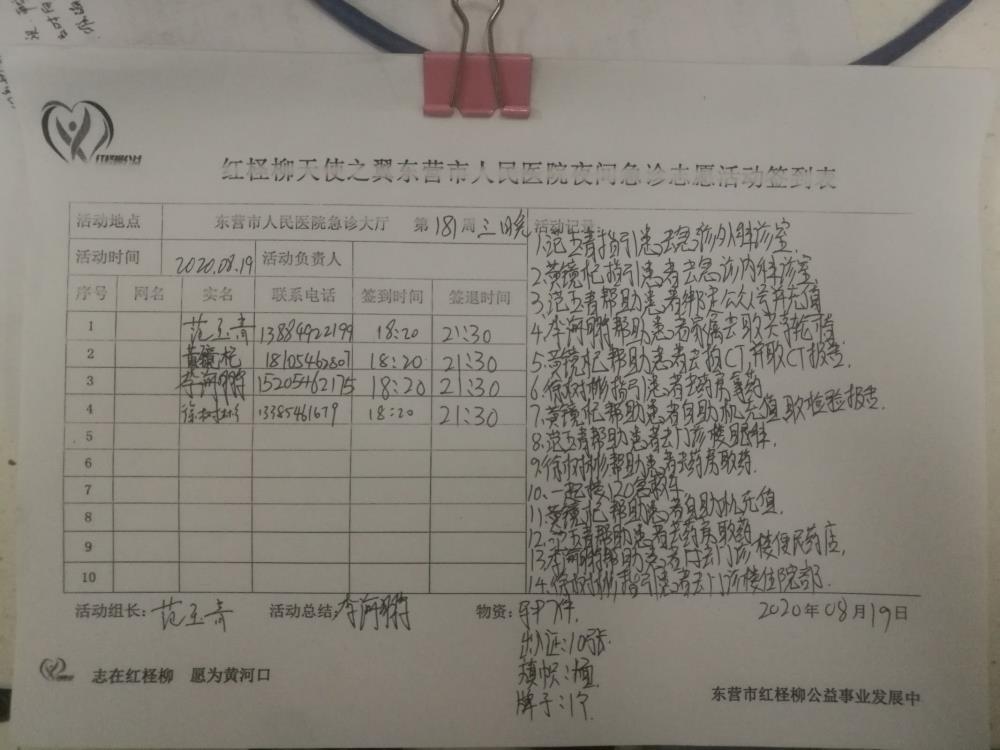 红柽柳天使之翼东营市人民医院夜间急诊志愿活动签到表
活动地点 东营市人民医院急诊大厅 第181周三晚 活动记录
活动时间 2020.08.19 活动负责人
序号 网名 实名 联系电话 签到时间 签退时间
1 范玉青 13884922199 18:20 21:30
2 黄镜杞 18105462807 18:20 21:30
3 李海鹏 15205462175 18:20 21:30
4 徐树彬 13385461679 18:20 21:30
5
6
7
8
9
10
1.范玉青指引患者去急诊外科诊室.
2.黄镜杞指引患者去急诊内科诊室
3.范玉青帮助患者绑定公众号并充值
4.李海鹏帮助患者家属去取共享轮椅
5.黄镜杞帮助患者去拍CT并取CT报告.
6.徐树彬指引患者去药房拿药
7.黄镜杞帮助患者自助机充值取检验报告.
8.范玉青帮助患者去门诊楼眼科.
9.徐树彬帮助患者去药房取药.
10.一起接120急救车
11.黄镜杞帮助患者自助机充值.
12.范玉青帮助患者去药房取药
13.李海鹏帮助患者去门诊楼便民药店,
14.徐树彬指引患者去门诊楼住院部.
活动组长:范玉青 活动总结:李海鹏 物资:马甲7件. 2020年08月19日
出入证:10张.
旗帜:1面
牌子:1个
志在红柽柳 愿为黄河口
东营市红柽柳公益事业发展中